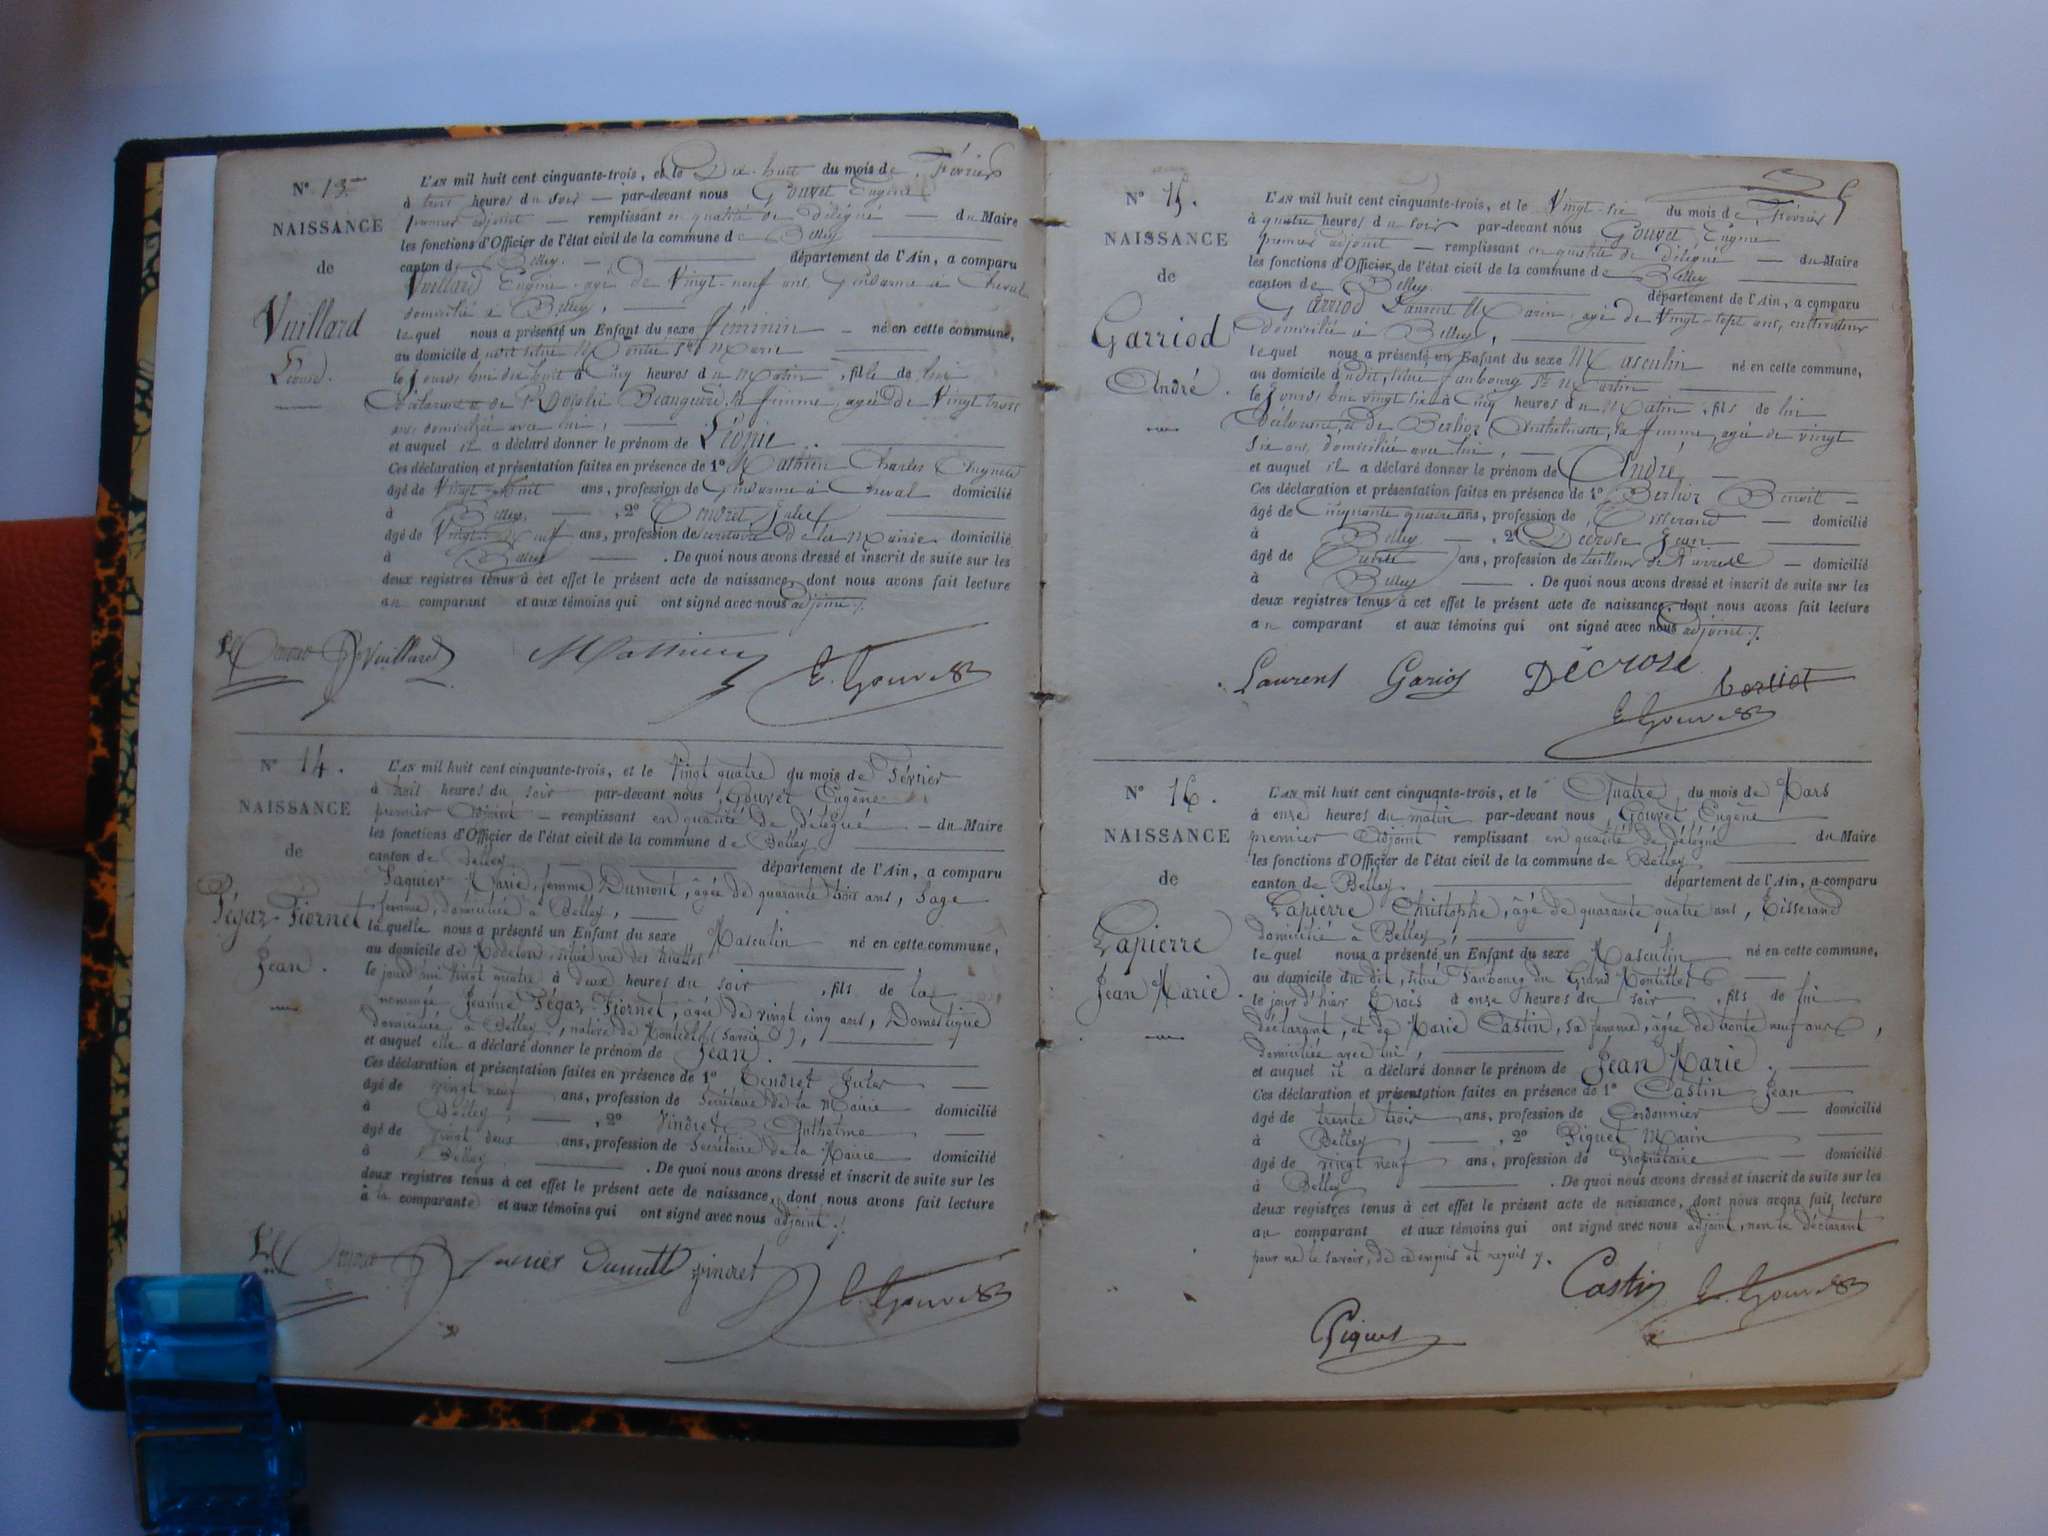 N° 13
NAISSANCE
de
Vuillard
Léonie.
L'AN mil huit cent cinquante-trois, et le Dix-huit du mois de Février
à trois heures du soir — par-devant nous Gouvet Eugène
premier adjoint — remplissant en qualité de délégué — du Maire
les fonctions d'Officier de l'état civil de la commune de Belley
canton de Belley — département de l'Ain, a comparu
Vuillard Eugène, agé de Vingt-neuf ans, Gendarme à Cheval
domicilié à Belley, —
lequel nous a présenté un Enfant du sexe féminin — né en cette commune,
au domicile du
le jourd'hui dix huit à Cinq heures du Matin, fille de lui
Déclarant et de Beauquère, sa femme, agée de Vingt trois
ans, domiciliée avec lui, —
et auquel il a déclaré donner le prénom de Léonie.
Ces déclaration et présentation faites en présence de 1° Mathieu Charles
âgé de Vingt-huit ans, profession de Gendarme à Cheval domicilié
à Belley, — , 2° Tendret Jules
âgé de Vingt-neuf ans, profession de Secrétaire de la Mairie domicilié
à Belley — . De quoi nous avons dressé et inscrit de suite sur les
deux registres tenus à cet effet le présent acte de naissance, dont nous avons fait lecture
au comparant et aux témoins qui ont signé avec nous adjoint ./.
Vuillard Mathieu E. Gouvet
N° 14.
NAISSANCE
de
Pégaz-Fiornet
Jean.
L'AN mil huit cent cinquante-trois, et le Vingt quatre du mois de Février
à trois heures du soir par-devant nous Gouvet Eugène
premier Adjoint — remplissant en qualité de délégué — du Maire
les fonctions d'Officier de l'état civil de la commune de Belley
canton de Belley — département de l'Ain, a comparu
Marie, femme Dumont, âgée de quarante trois ans, Sage
femme, domiciliée à Belley, —
laquelle nous a présenté un Enfant du sexe Masculin né en cette commune,
au domicile de situé rue des
le jourd'hui Vingt quatre à deux heures du soir, fils de la
nommée Jeanne Pégaz-Fiornet, âgée de vingt cinq ans, Domestique
domiciliée à Belley, native de (Savoie),
et auquel elle a déclaré donner le prénom de Jean.
Ces déclaration et présentation faites en présence de 1° Tendret Jules —
âgé de vingt neuf ans, profession de Secrétaire de la Mairie domicilié
à Belley, — , 2° Vindret Anthelme —
âgé de vingt deux ans, profession de Secrétaire de la Mairie domicilié
à Belley — . De quoi nous avons dressé et inscrit de suite sur les
deux registres tenus à cet effet le présent acte de naissance, dont nous avons fait lecture
à la comparante et aux témoins qui ont signé avec nous adjoint ./.
E. Gouvet
N° 15.
NAISSANCE
de
Garriod
André.
L'AN mil huit cent cinquante-trois, et le Vingt-six du mois de Février
à quatre heures du soir par-devant nous Gouvet Eugène
premier adjoint — remplissant en qualité de délégué — du Maire
les fonctions d'Officier de l'état civil de la commune de Belley
canton de Belley — département de l'Ain, a comparu
Garriod Laurent Marin, agé de Vingt-sept ans, cultivateur
Domicilié à Belley, —
lequel nous a présenté un Enfant du sexe Masculin né en cette commune,
au domicile du dit, situé faubourg St Martin
le jourd'hui vingt six à Cinq heures du Matin, fils de lui
Déclarant, et de Berlioz Anthelmette, sa femme, agée de vingt
six ans, domiciliée avec lui, —
et auquel il a déclaré donner le prénom de André, —
Ces déclaration et présentation faites en présence de 1° Berlioz Benoit —
âgé de Cinquante quatre ans, profession de Tisserand — domicilié
à Belley — , 2° Décrose Jean
âgé de Trente ans, profession de tailleur de Pierre — domicilié
à Belley — . De quoi nous avons dressé et inscrit de suite sur les
deux registres tenus à cet effet le présent acte de naissance, dont nous avons fait lecture
au comparant et aux témoins qui ont signé avec nous adjoint ./.
Laurent Gariod DÉcrose
E. Gouvet
N° 16.
NAISSANCE
de
Lapierre
Jean Marie.
L'AN mil huit cent cinquante-trois, et le Quatre du mois de Mars
à onze heures du matin par-devant nous Gouvet Eugène
premier Adjoint remplissant en qualité de délégué du Maire
les fonctions d'Officier de l'état civil de la commune de Belley
canton de Belley — département de l'Ain, a comparu
Lapierre Christophe, âgé de quarante quatre ans, Tisserand
domicilié à Belley, —
lequel nous a présenté un Enfant du sexe Masculin né en cette commune,
au domicile du dit, situé Faubourg du Grand
le jour d'hier Trois à onze heures du soir, fils de lui
déclarant, et de Marie Castin, sa femme, âgée de trente neuf ans,
domiciliée avec lui, —
et auquel il a déclaré donner le prénom de Jean Marie.
Ces déclaration et présentation faites en présence de 1° Castin Jean
âgé de trente trois ans, profession de Cordonnier — domicilié
à Belley, — , 2° Piquet Marin
âgé de vingt neuf ans, profession de Propriétaire — domicilié
à Belley — . De quoi nous avons dressé et inscrit de suite sur les
deux registres tenus à cet effet le présent acte de naissance, dont nous avons fait lecture
au comparant et aux témoins qui ont signé avec nous adjoint, non le déclarant
pour ne le savoir, de ce enquis et requis ./.
Castin E. Gouvet
Piquet